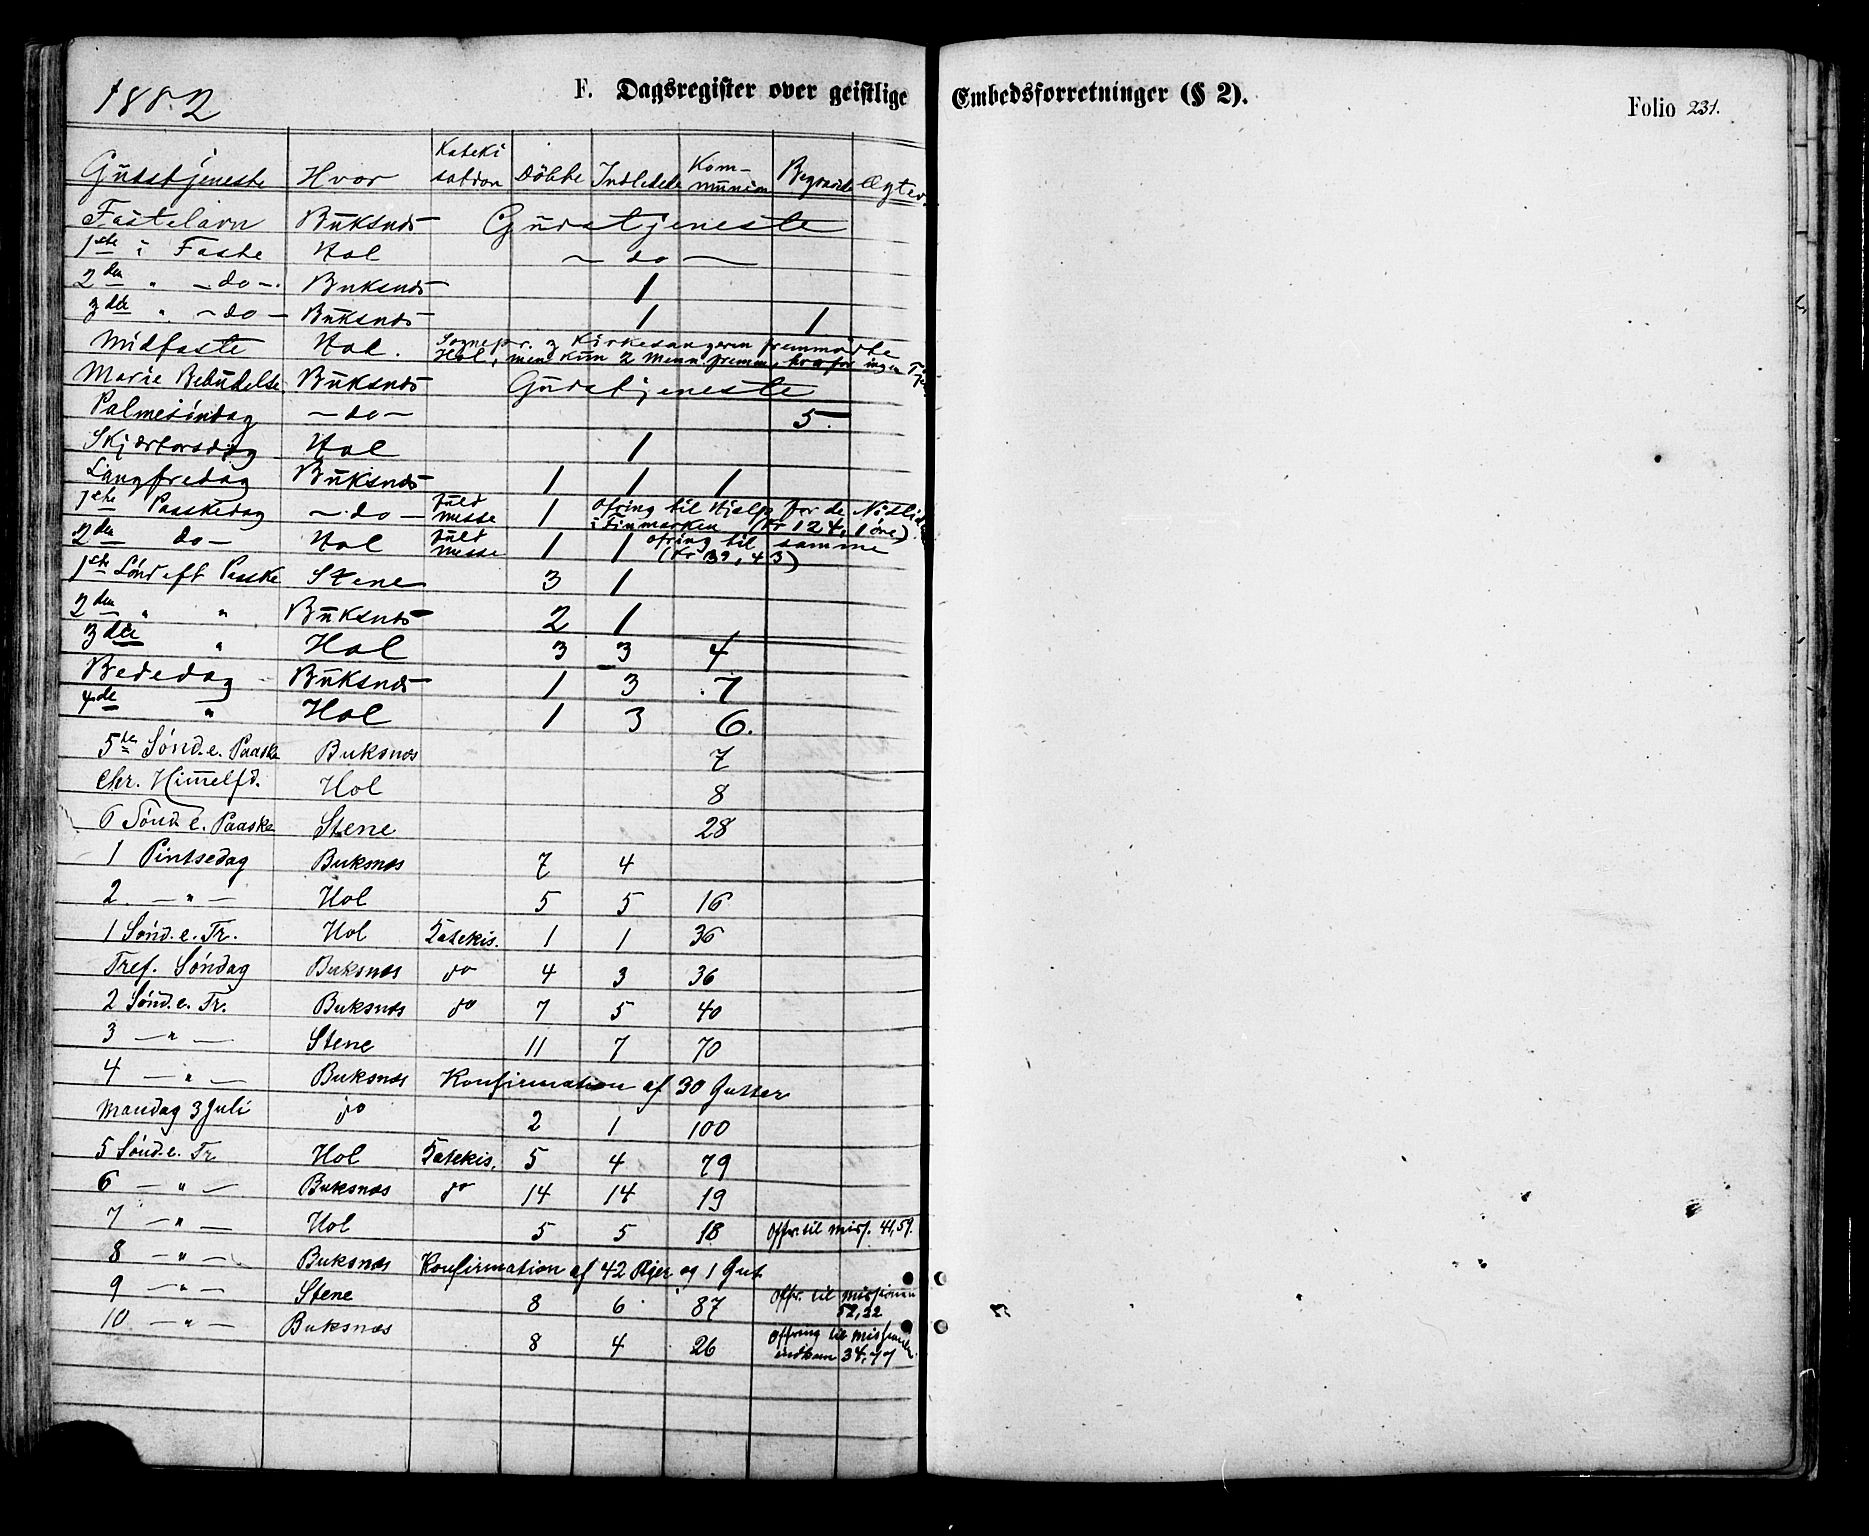 1882 F. Dagsregister over geistlige Embedsforretninger (§ 2). Folio 231.
Gudstjeneste Hvor Kateki sation Döbte Indledede Kom- munion Begravede Ægtev.
Fastelavn Buksnæs Gudstjeneste
1ste i Faste Hol — do —
2den " — do — Buksnæs 1
3die " — do — Buksnæs 1 1
Midfaste Hol. Sognepr. og Kirkesangeren fremmødte
Hol, men kun 2 Menn fremm, hvorfor ingen
Marie Bebudelse Buksnæs Gudstjeneste
Palmesöndag — do — 5.
Skjærtorsdag Hol 1
Langfredag Buksnæs 1 1 1
1ste Paaskedag — do — fuld messe 1 Ofring til Hjælp for de Nødlid
i Finmarken (Kr 124, 1 öre)
2den do — Hol fuld messe 1 1 ofring til samme
(Kr 39, 43)
1ste Sönd eft Paaske Stene 3 1
2den " " Buksnæs 2 1
3die " Hol 3 3 4
Bededag — Buksnæs 1 3 7
4de " Hol 1 3 6.
5te Sönd. e. Paaske Buksnæs 7
Chr. Himmelfd. Hol 8
6 Sönd e. Paaske Stene 28
1 Pintsedag Buksnæs 7 4
2. — " — Hol 5 5 16
1 Sönd. e. Tr. Hol Katekis. 1 1 36
Tref. Söndag Buksnæs do 4 3 36
2 Sönd. e. Tr. Buksnæs do 7 5 40
3 — " — Stene 11 7 70
4 — " — Buksnæs Konfirmation af 30 Gutter
Mandag 3 Juli do 2 1 100
5 Sönd. e. Tr Hol Katekis. 5 4 79
6 — " — Buksnæs do 14 14 19
7 — " — Hol 5 5 18 Offr. til Miss. 41,59.
8 — " — Buksnæs Konfirmation af 42 Piger og 1 Gut
9 — " — Stene 8 6 87 Offr. til Missionen
52,22
10 — " — Buksnæs 8 4 26 Offring til Missionen
indkom 34,77